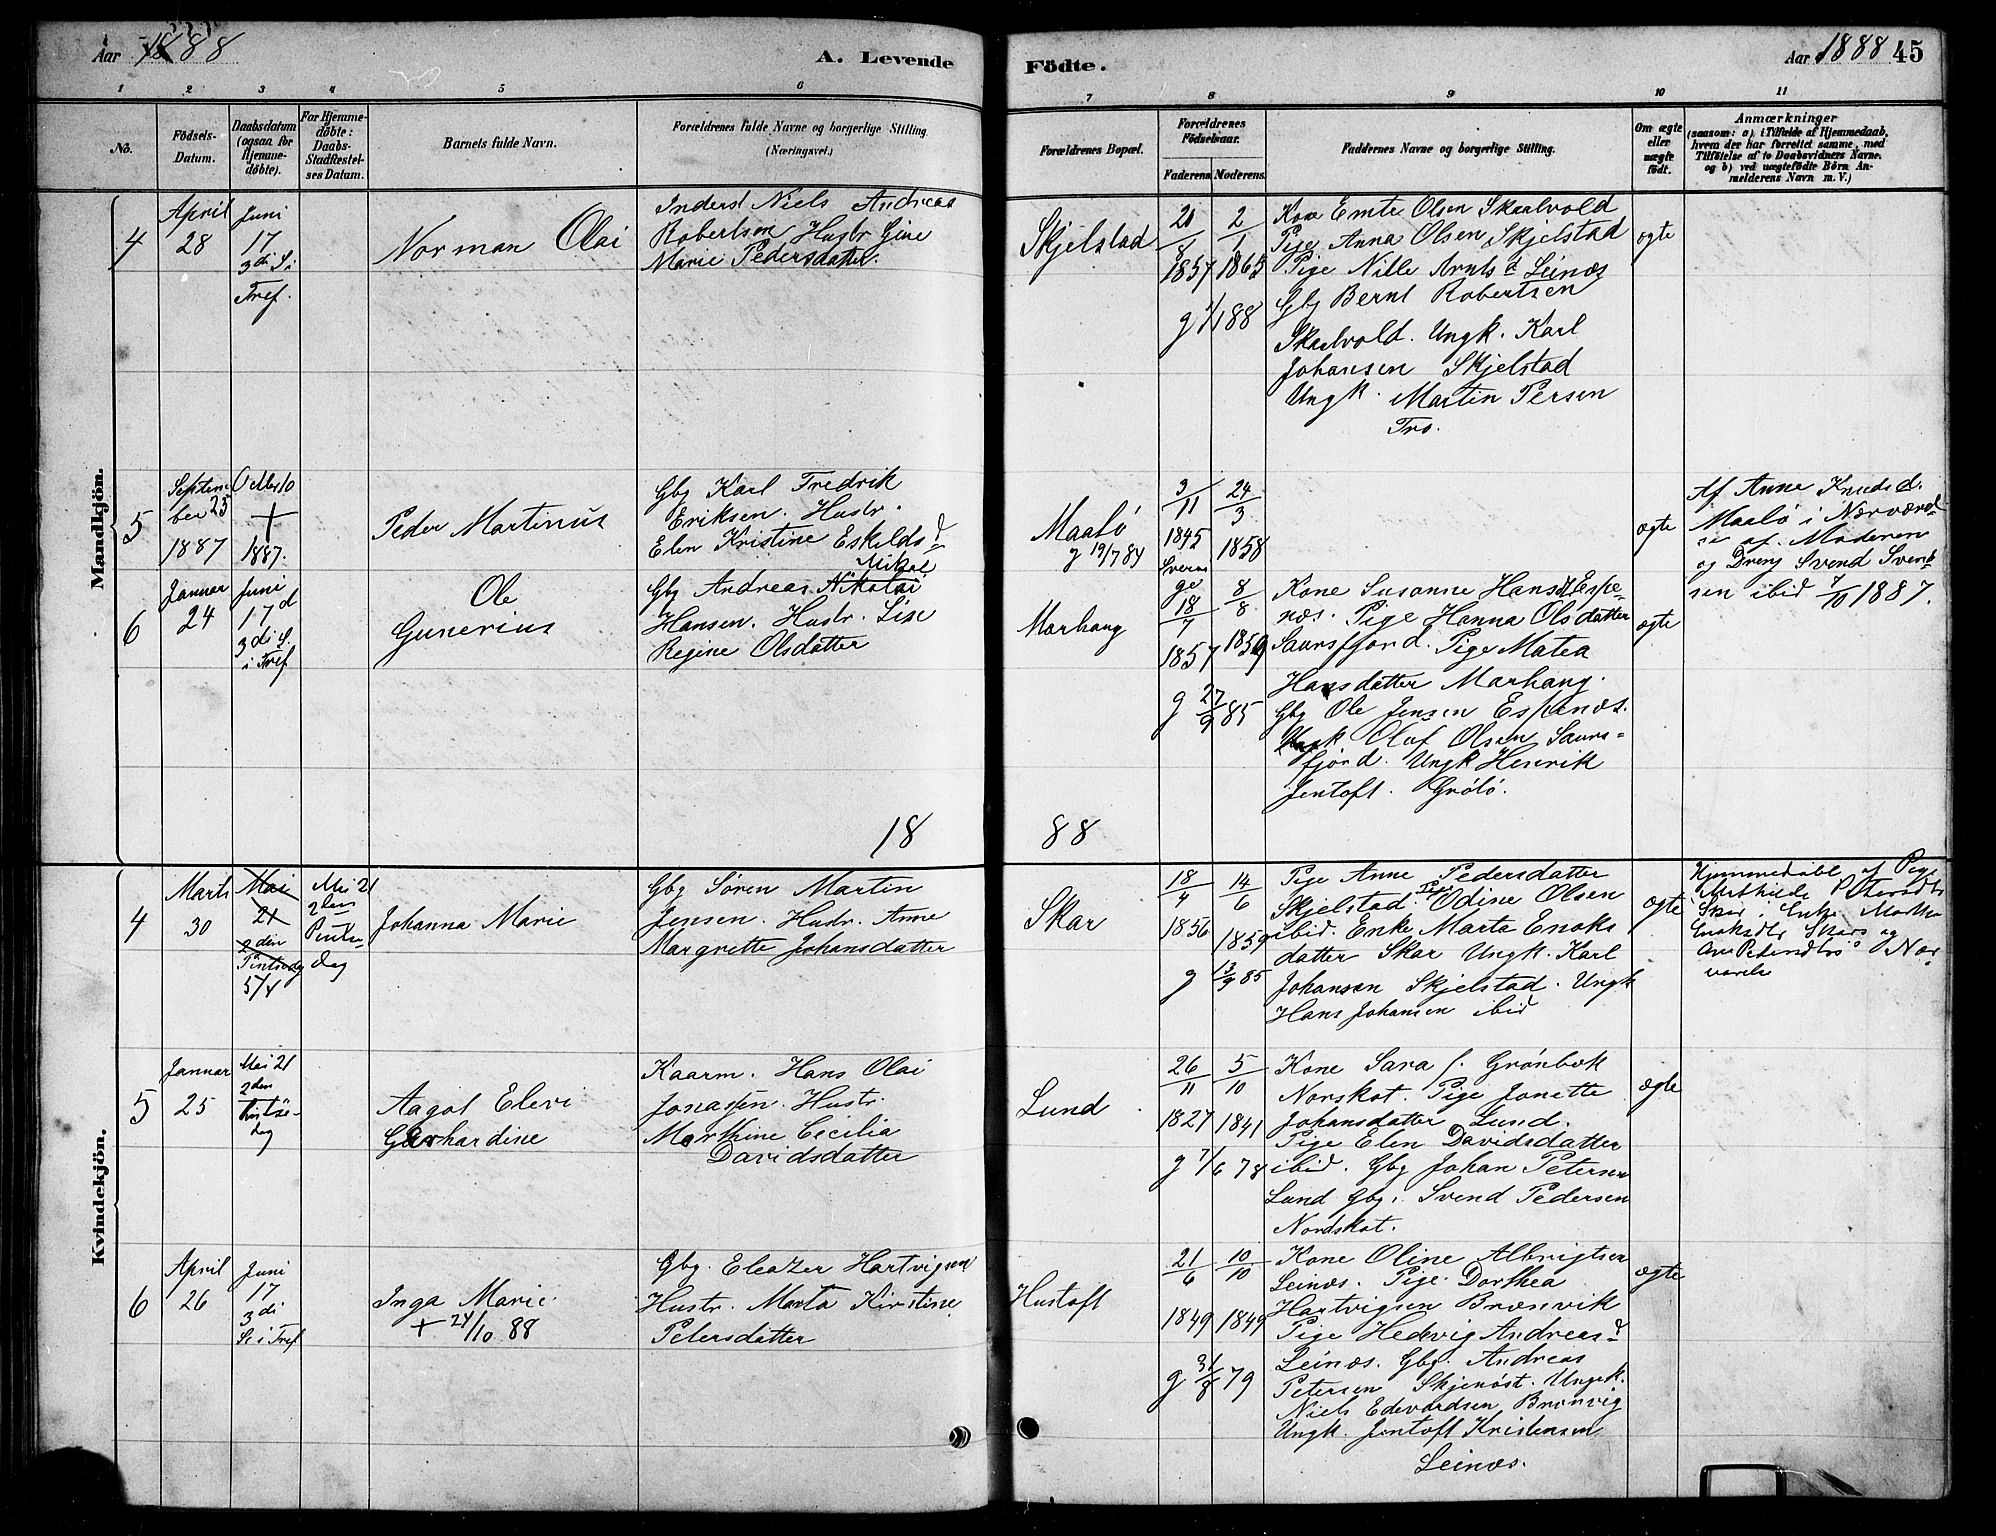 Aar 1888
A. Levende
Födte.
Aar 1888
45
1 2 3 4 5 6 7 8 9 10 11
No.
Födsels-
Datum.
Daabsdatum
(ogsaa for
Hjemme-
döbte).
For Hjemme-
döbte:
Daabs-
Stadfæstel-
ses Datum.
Barnets fulde Navn.
Forældrenes fulde Navne og borgerlige Stilling
(Næringsvei.)
Forældrenes Bopæl.
Forældrenes
Födselsaar.
Faderens. Moderens.
Faddernes Navne og borgerlige Stilling.
Om ægte
eller
uægte
født.
Anmærkninger
(saasom: a) i Tilfælde af Hjemmedaab,
hvem der har forrettet samme, med
Tilföielse af to Daabsvidners Navne.
og b) ved uægtefödte Börn An-
melderens Navn m. V.)
Mandkjön.
4
April
28
Juni
17
3di S. i
Tref.
Norman Olai
Inderst Niels Andreas
Robertsen Hustr. Gine
Marie Pedersdatter.
Skjelstad
1857
2/1
1865
g 88
Kone Emte Olsen Skaalvold
Pige Anna Olsen Skjelstad
Pige Nille Arntsd Leinæs
Gbg Bernt Robertsen
Skaalvold. Ungk. Karl
Johansen Skjelstad
Ungk. Martin Persen
Tro.
ægte
5
Septem
ber 25
1887
+
1887.
Peder Martinus
Gbg Karl Fredrik
Eriksen. Hustr.
Elen Kristine Eskildsd
Maalö
g 19/7 84
3/11
1845
Sverr
ge
24/3
1858
ægte
Af Anne Knudsd.
Maalö i Nærværel
se af Moderen
og Dreng Svend Svend
sen ibid 7/10 1887.
6
Januar
24
Juni
17d
3di S.
i Tref
Ole
Gunerius
Gbg Andreas Nikolai Mikal
Hansen. Hustr. Lise
Regine Olsdatter
Marhaug
18/7
1857
8/8
1859
g 27/9 85
Kone Susanne Hansd Espe-
næs. Pige Hanna Olsdatter
Saursfjord. Pige Matea
Hansdatter Marhaug.
Gbg Ole Jensen Espenæs.
Ungk Olaf Olsen Saurs-
fjord. Ungk Henrik
Jentoft. Grötö.
ægte
18 88
Kvindekjön.
4
Marts
30
Mai
21
2den
Pintsedag
5/4
Mai 21
2den
Pintse-
dag
Johanna Marie
Gbg Sören Martin
Jensen. Hustr. Anne
Margrette Johansdatter
Skar
18/4
1856
14/6
1859
g 13/9 85
Pige Anne Pedersdatter
Skjelstad Pige Odine Olsen
ibid. Enke Marta Enoks
datter Skar Ungk. Karl
Johansen Skjelstad. Ungk
Hans Johansen ibid
ægte
Hjemmedöbt af Pige
Skar i Enke Martha
Enoksdtr Skars og
Nær
værelse
5
Januar
25
Mai 21
2den
Pintse-
dag
Aagot Elevi
Gerhardine
Kaarm. Hans Olai
Jonassen. Hustr.
Marthine Cecilia
Davidsdatter
Lund
26/11
1827
5/10
1841
g 7/6 78
Kone Sara f. Grönbæk
Norskot. Pige Jonette
Johansdatter Lund.
Pige Elen Davidsdatter
ibid. Gbg Johan Petersen
Lund Gbg. Svend Pedersen
Nordskot.
ægte
6
April
26
Juni
17
3di
S. i Tref
Inga Marie
+ 24/10 88
Gbg. Eleazer Hartvigsen
Hustr. Marta Kirstine
Petersdatter
Hustoft
21/6
1849
10/10
1849
g 31/8 79
Kone Oline Albrigtsen
Leinæs. Pige. Dorthea
Hartvigsen Brænvik
Pige Hedevig Andreasd
Leinæs. Gbg. Andreas
Petersen Skjenöst. Ungk.
Niels Edevardsen Brænvig
Ungk. Jentoft Kristensen
Leinæs.
ægte